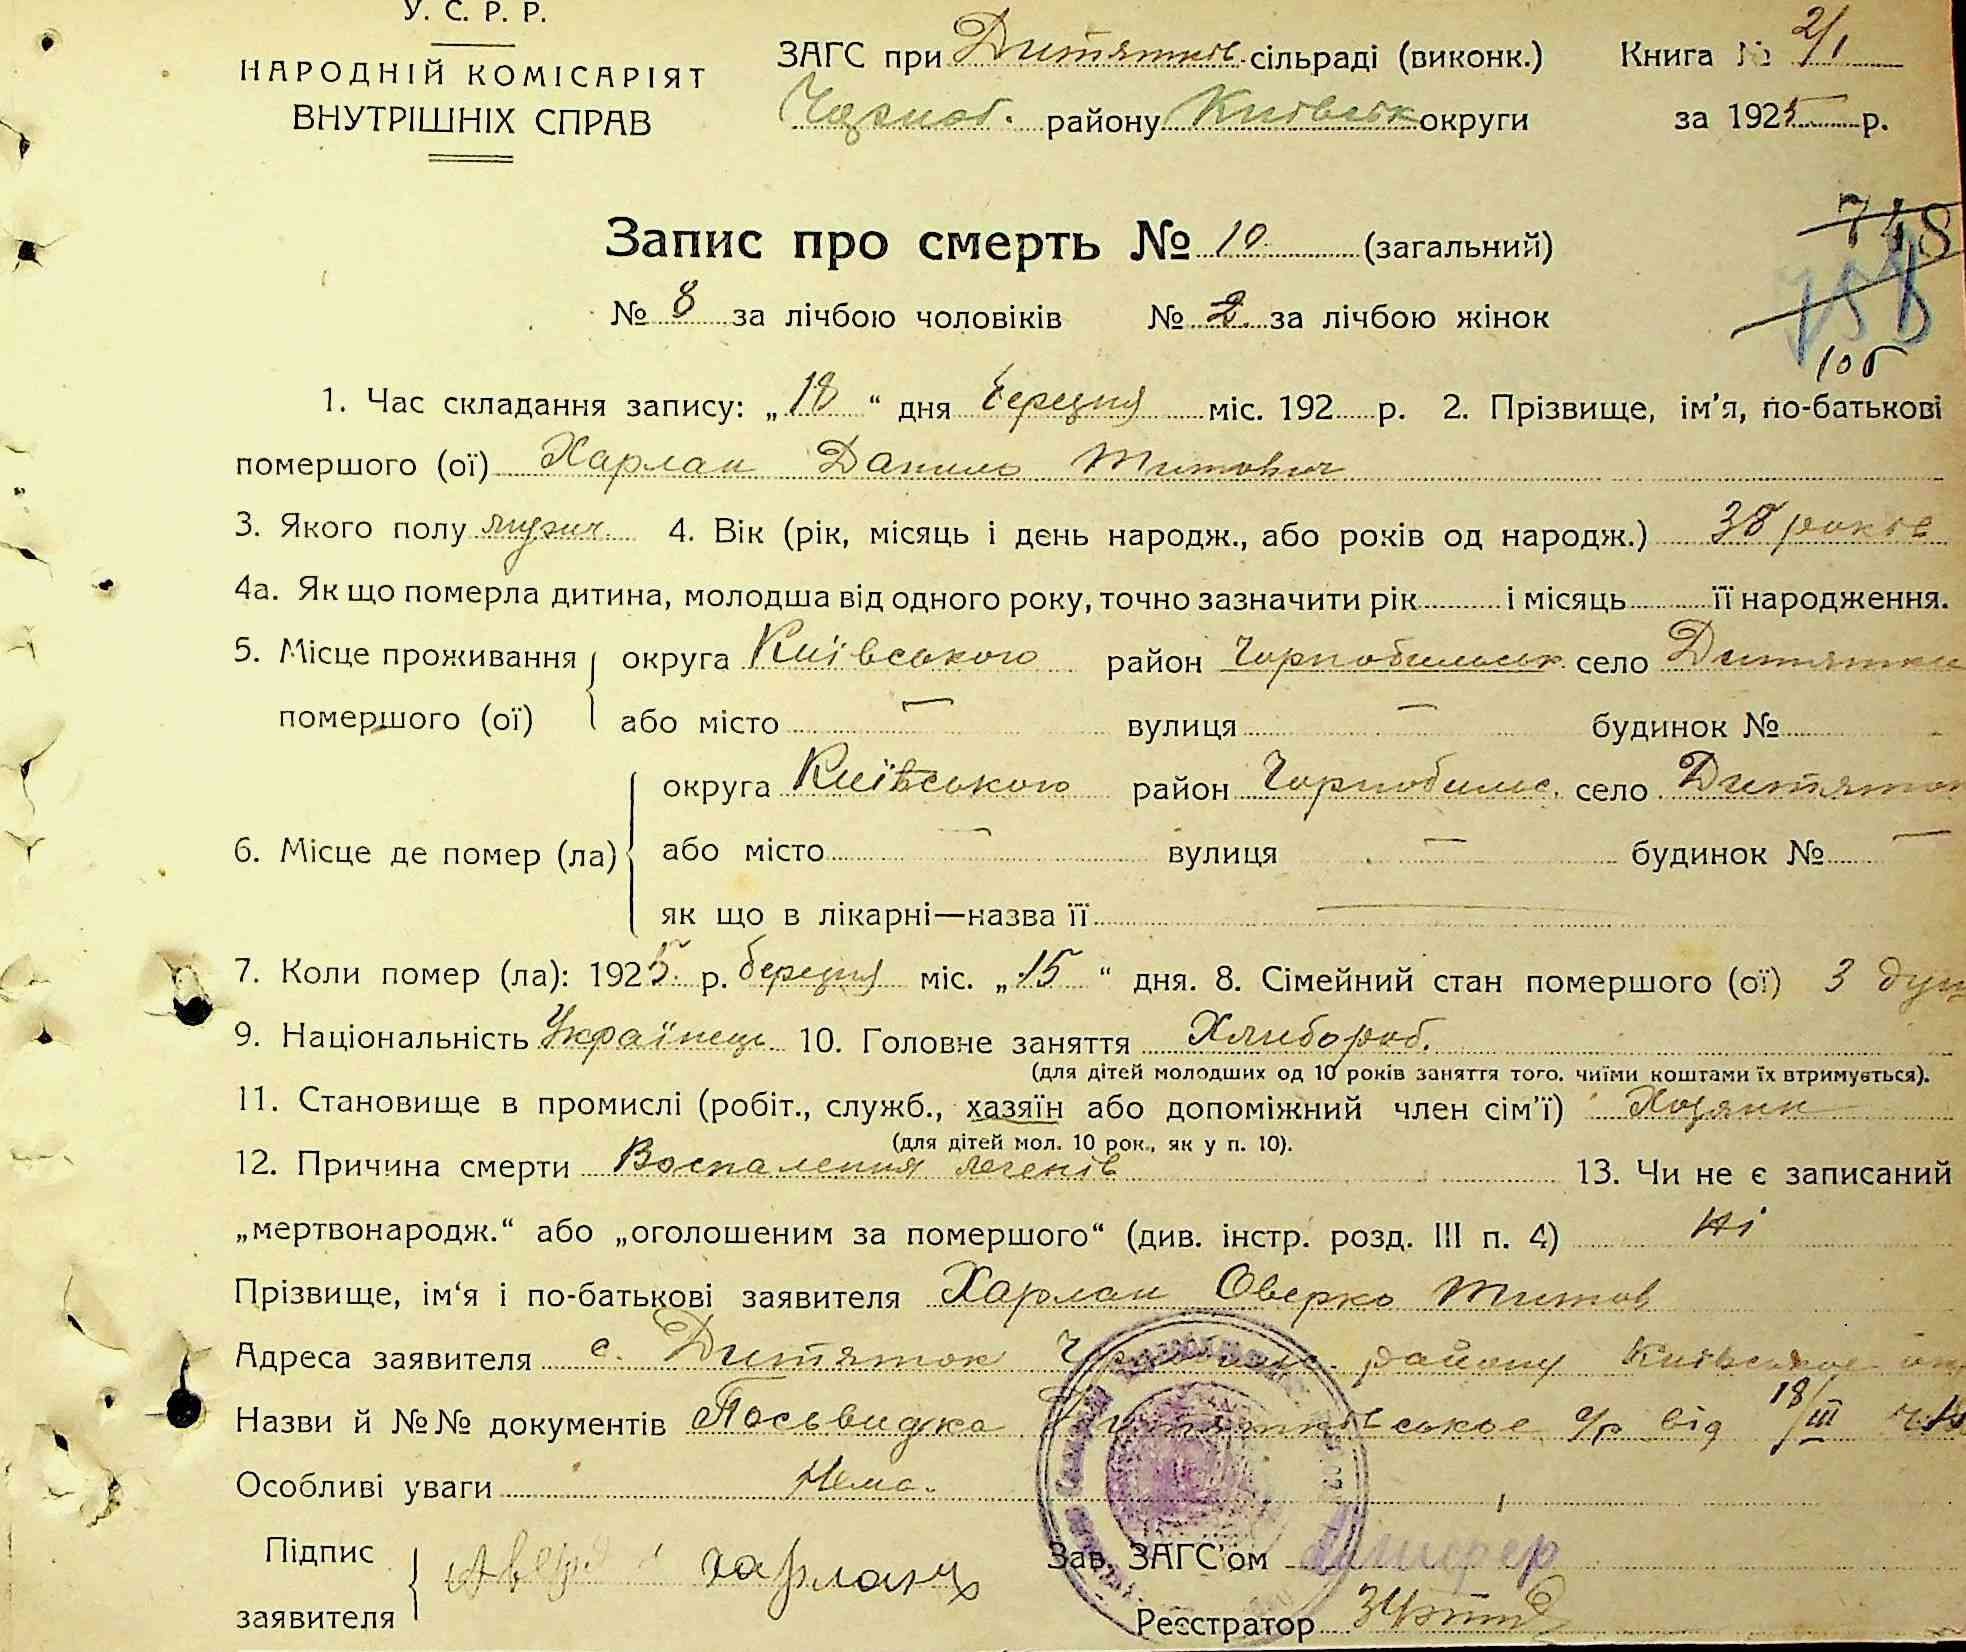 У. С. Р. Р.
НАРОДНІЙ КОМІСАРІЯТ
ВНУТРІШНІХ СПРАВ
ЗАГС при Дитятків. сільраді (виконк.)
Чорноб. району Київськ округи
Книга № 2/1
за 1925 р.
748
758
105
Запис про смерть № 10 (загальний)
№ 8 за лічбою чоловіків № 2 за лічбою жінок
1. Час складання запису: „18“ дня березня міс. 192 р. 2. Прізвище, ім'я, по-батькові
помершого (ої) Харлан Данило Титович
3. Якого полу мужич. 4. Вік (рік, місяць і день народж., або років од народж.) 38 років
4а. Як що померла дитина, молодша від одного року, точно зазначити рік і місяць її народження.
5. Місце проживання помершого (ої) округа Київського район Чорнобильськ село Дитятки
або місто — вулиця — будинок №
6. Місце де помер (ла) округа Київського район Чорнобильс. село Дитяток
або місто — вулиця — будинок № —
як що в лікарні—назва її —
7. Коли помер (ла): 1925 р. березня міс. „15“ дня. 8. Сімейний стан помершого (ої) 3 душ
9. Національність Українець 10. Головне заняття Хлибороб.
(для дітей молодших од 10 років заняття того, чиїми коштами їх втримується).
11. Становище в промислі (робіт., служб., хазяїн або допоміжний член сім'ї) Хозяин
(для дітей мол. 10 рок., як у п. 10).
12. Причина смерти Воспаления легенів 13. Чи не є записаний
„мертвонародж.“ або „оголошеним за помершого“ (див. інстр. розд. III п. 4) Ні
Прізвище, ім'я і по-батькові заявителя Харлан Оверко Титов
Адреса заявителя с. Дитяток району Київськое
Назви й №№ документів Посьвидка Дитятківськое с/р від 18/III
Особливі уваги Нема.
Підпис заявителя харлан
Зав. ЗАГС'ом
Реєстратор